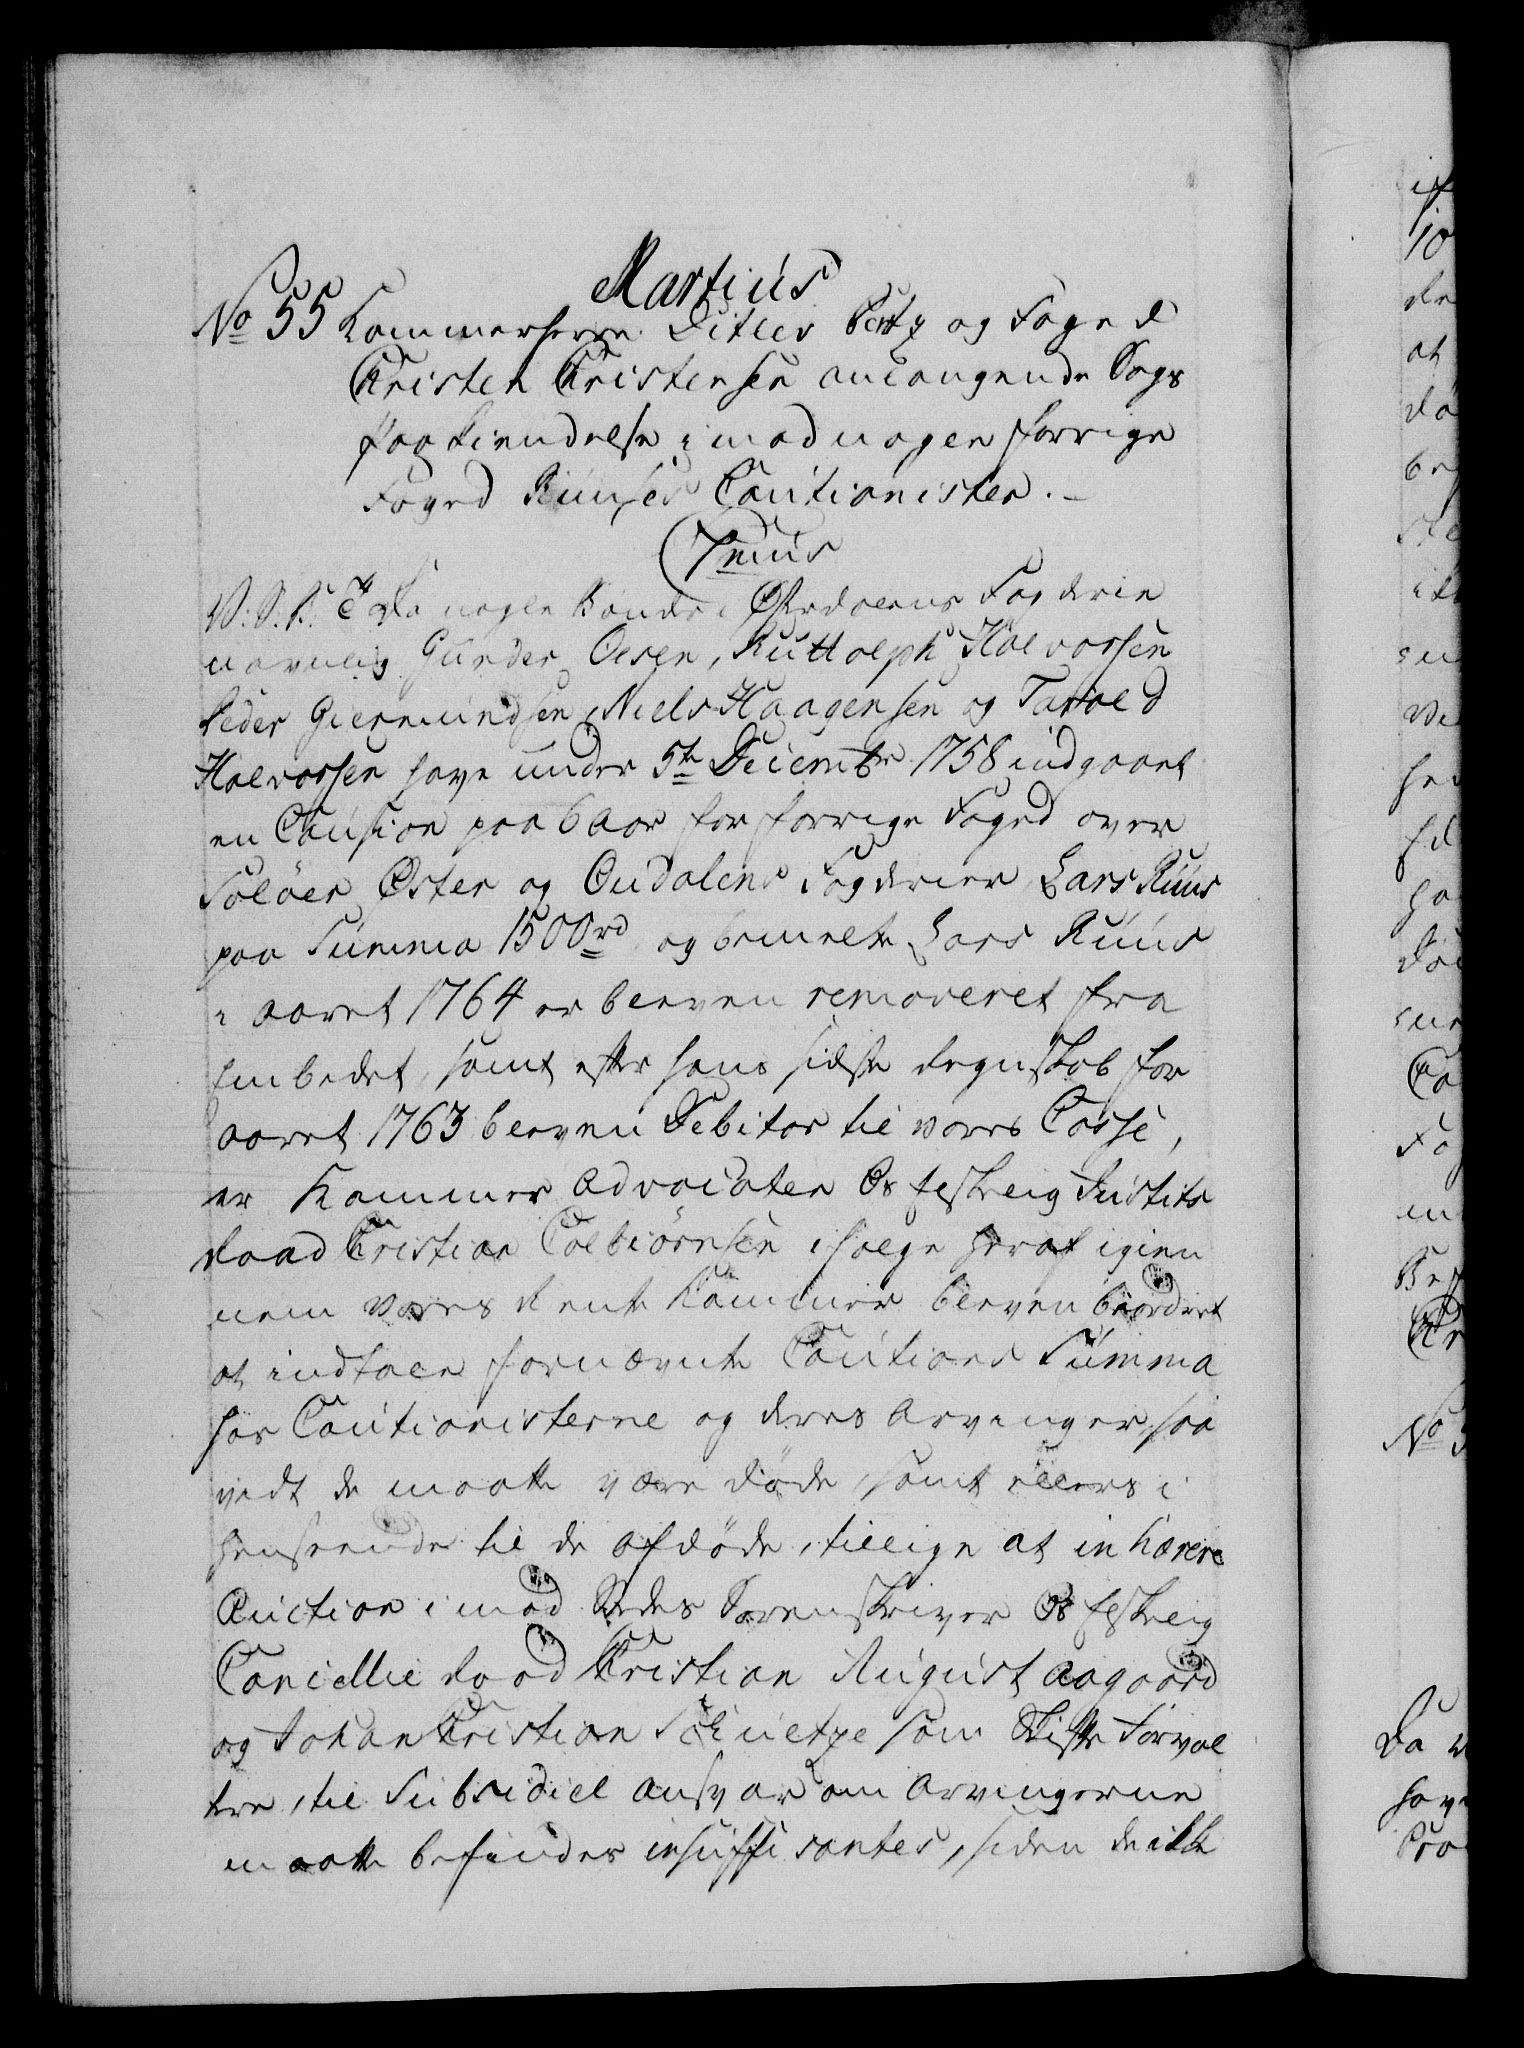 Martius
No 55 Kammerherre Ditlev Pentz og Foged
Christen Christensen anlangende Sags
paakiendelse imod nogen forrige
Foged Ruuses Cautionister.
Prmis
V: S: K: T Da nogle Bønder i Østerdalens Fogderie
navnlig Gunder Olsen, Rutholph Halvorsen
Peder Giermundsen, Niels Haagensen og Tarald
Halvorsen have under 5te Decembr 1758 indgaaet
en Caution paa 6 Aar for forrige Foged over
Soløer Øster og Oudalens Fogderier Lars Ruus
paa Summa 1500rd og bemelte Lars Ruus
i aaret 1764 er bleven removeret fra
Embedet, samt efter hans sidste Regnskab for
aaret 1763 bleven Debitor til vores Casse,
er Kammer Advocaten Os elskelig Justits
Raad Christian Colbiørnsen ifølge heraf igien
nem vores Rente Kammer bleven beordret
at indtale fornævnte Cautions Summa
hos Cautionisterne og deres Arvinger, saa
vidt de maatte være døde, samt ellers i
henseende til de afdøde, tillige at inhærere
Auction imod Stædes Sorenskriver Os elskelig
Cancellie Raad Christian August Aagaard
og Johan Christian Schuetze som Skifte Forval
tere, til Subsidiel ansvar om Arvingerne
maatte befindes insuffisantes, siden de ikke